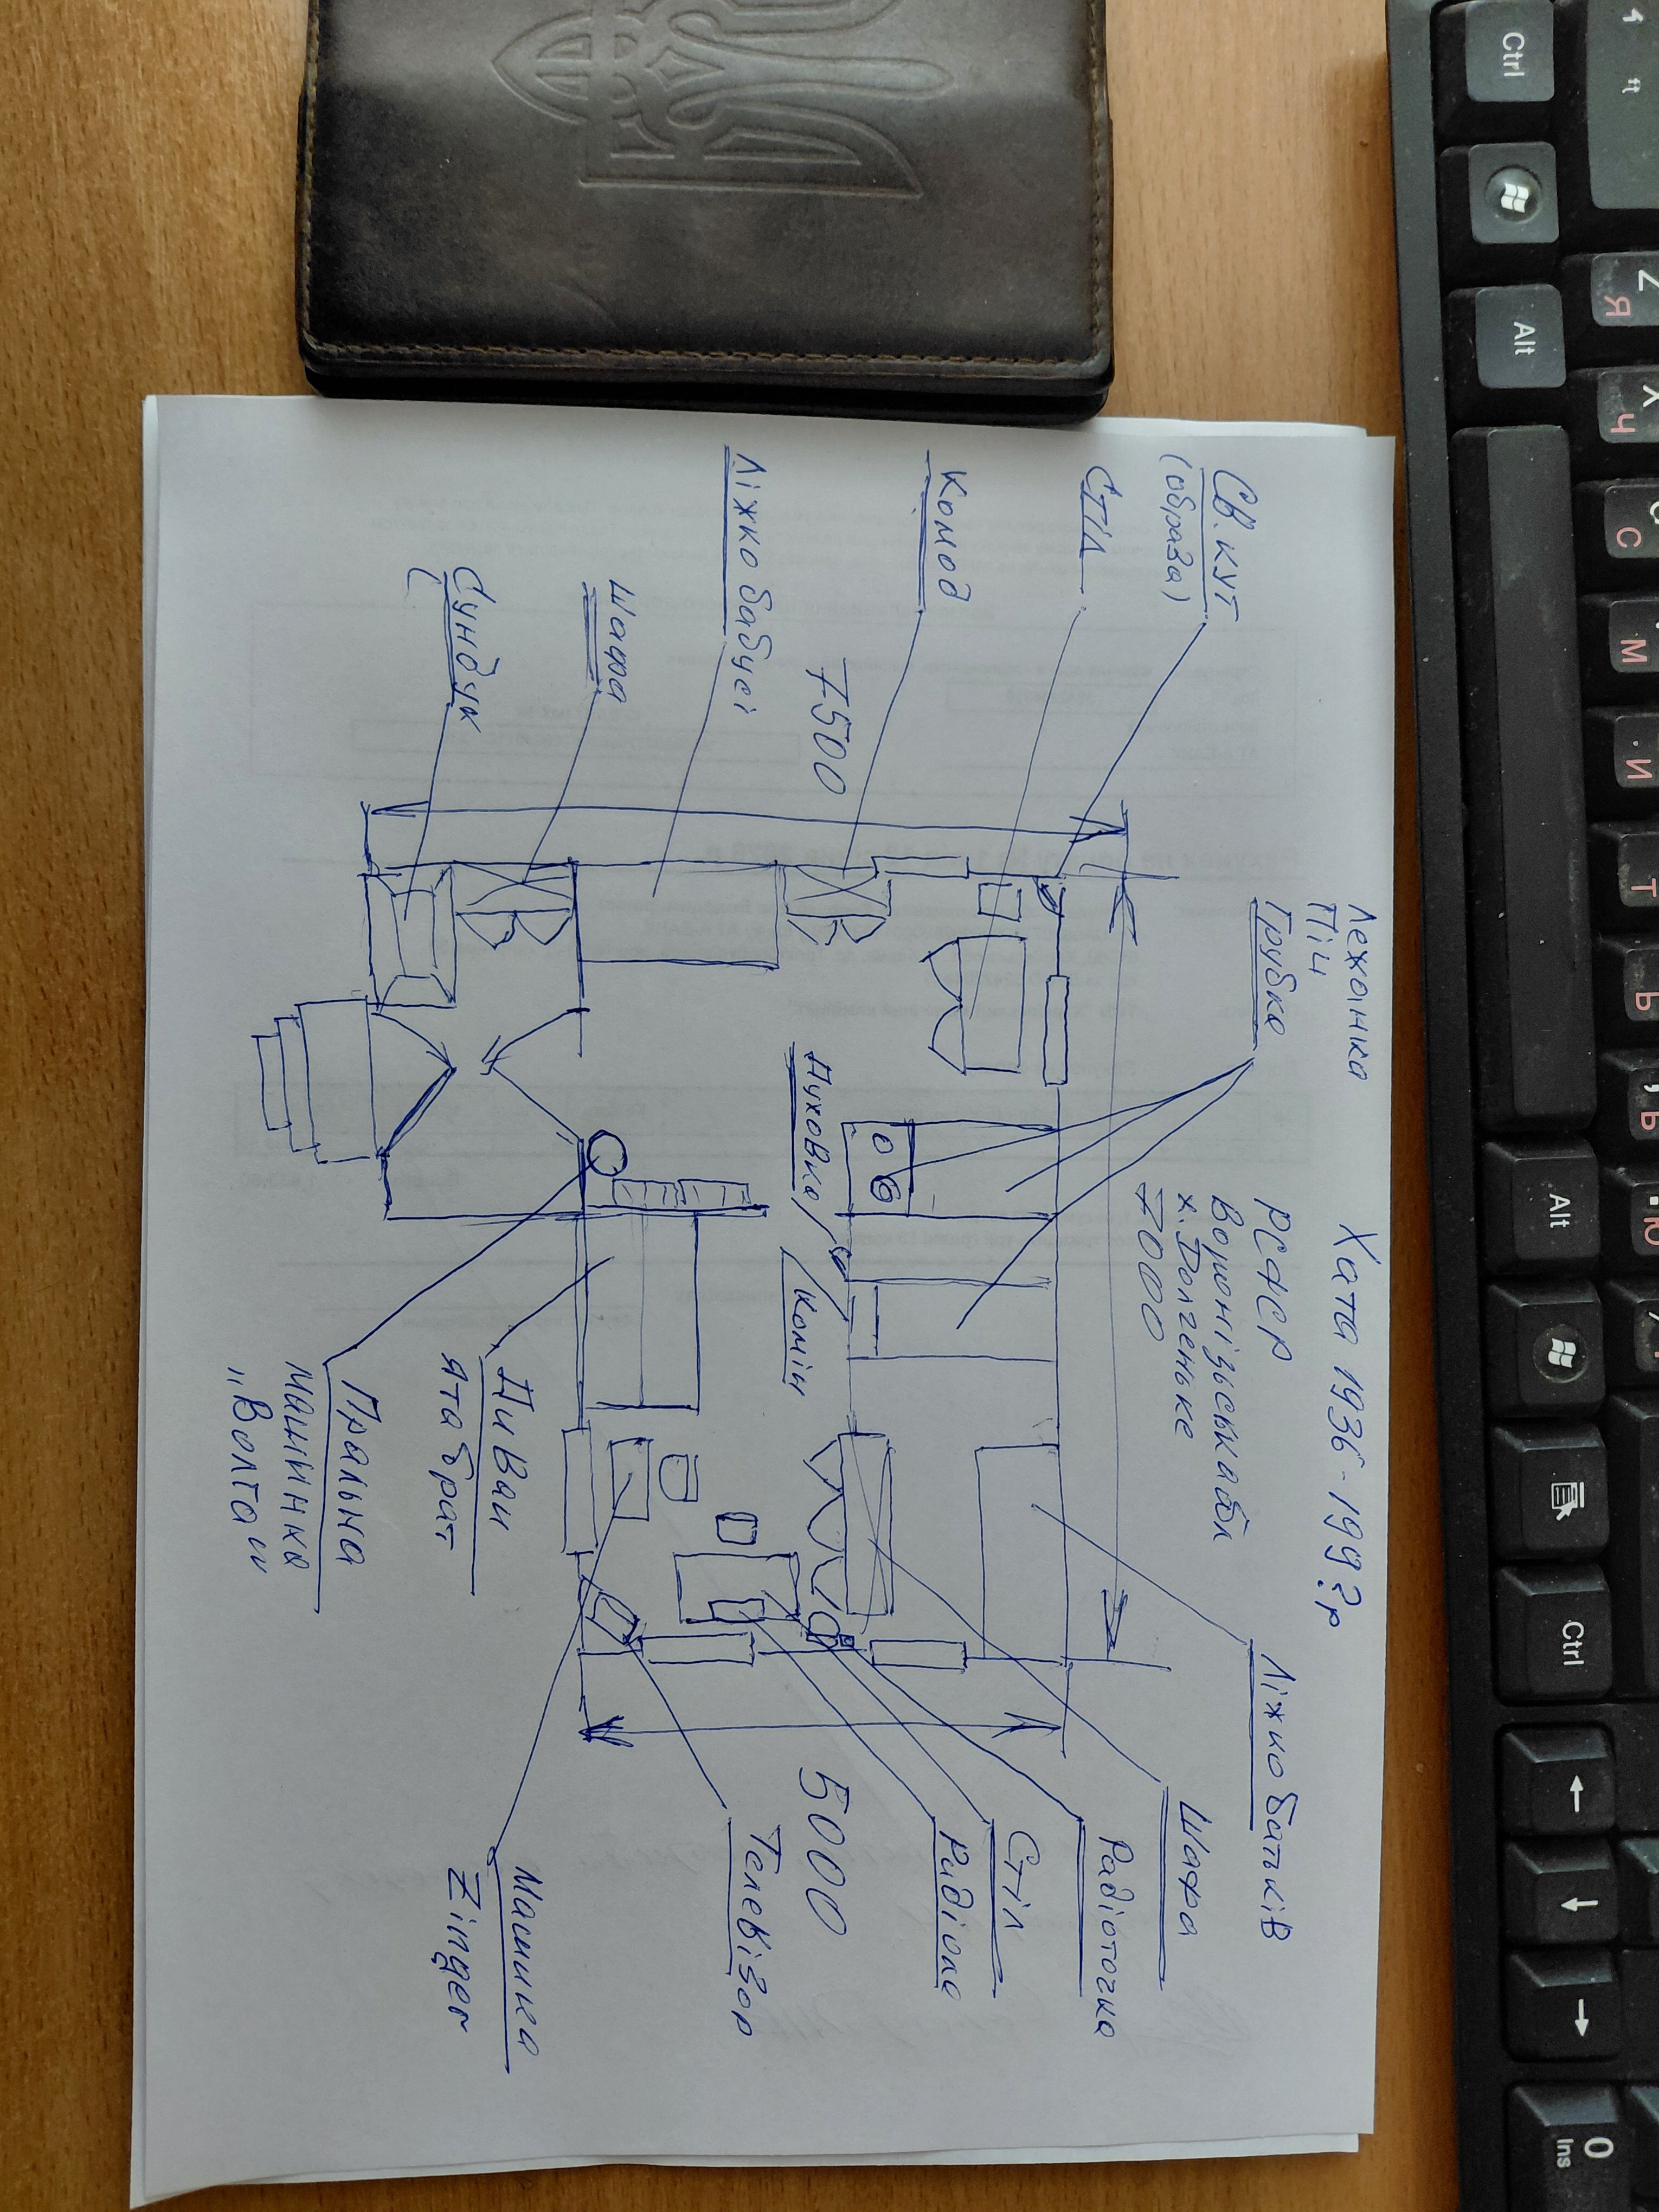 Хата 1936-199?р
РСФСР
Воронізська обл
х. Долгеньке
7000
Лежанка
Піч
Грубка
Св. кут
(образа)
Стіл
Комод
7500
Ліжко бабусі
Шафа
Сундук
Духовка
Комін
Ліжко батьків
Шафа
Радіоточка
Стіл
Радіола
5000
Телевізор
Машинка
Zinger
Диван
я та брат
Пральна
машинка
„Волга"
Ctrl
Alt
Z Я
X Ч
С
М
И
Т
Ь
Б
Ю
Alt
Ctrl
0
Ins